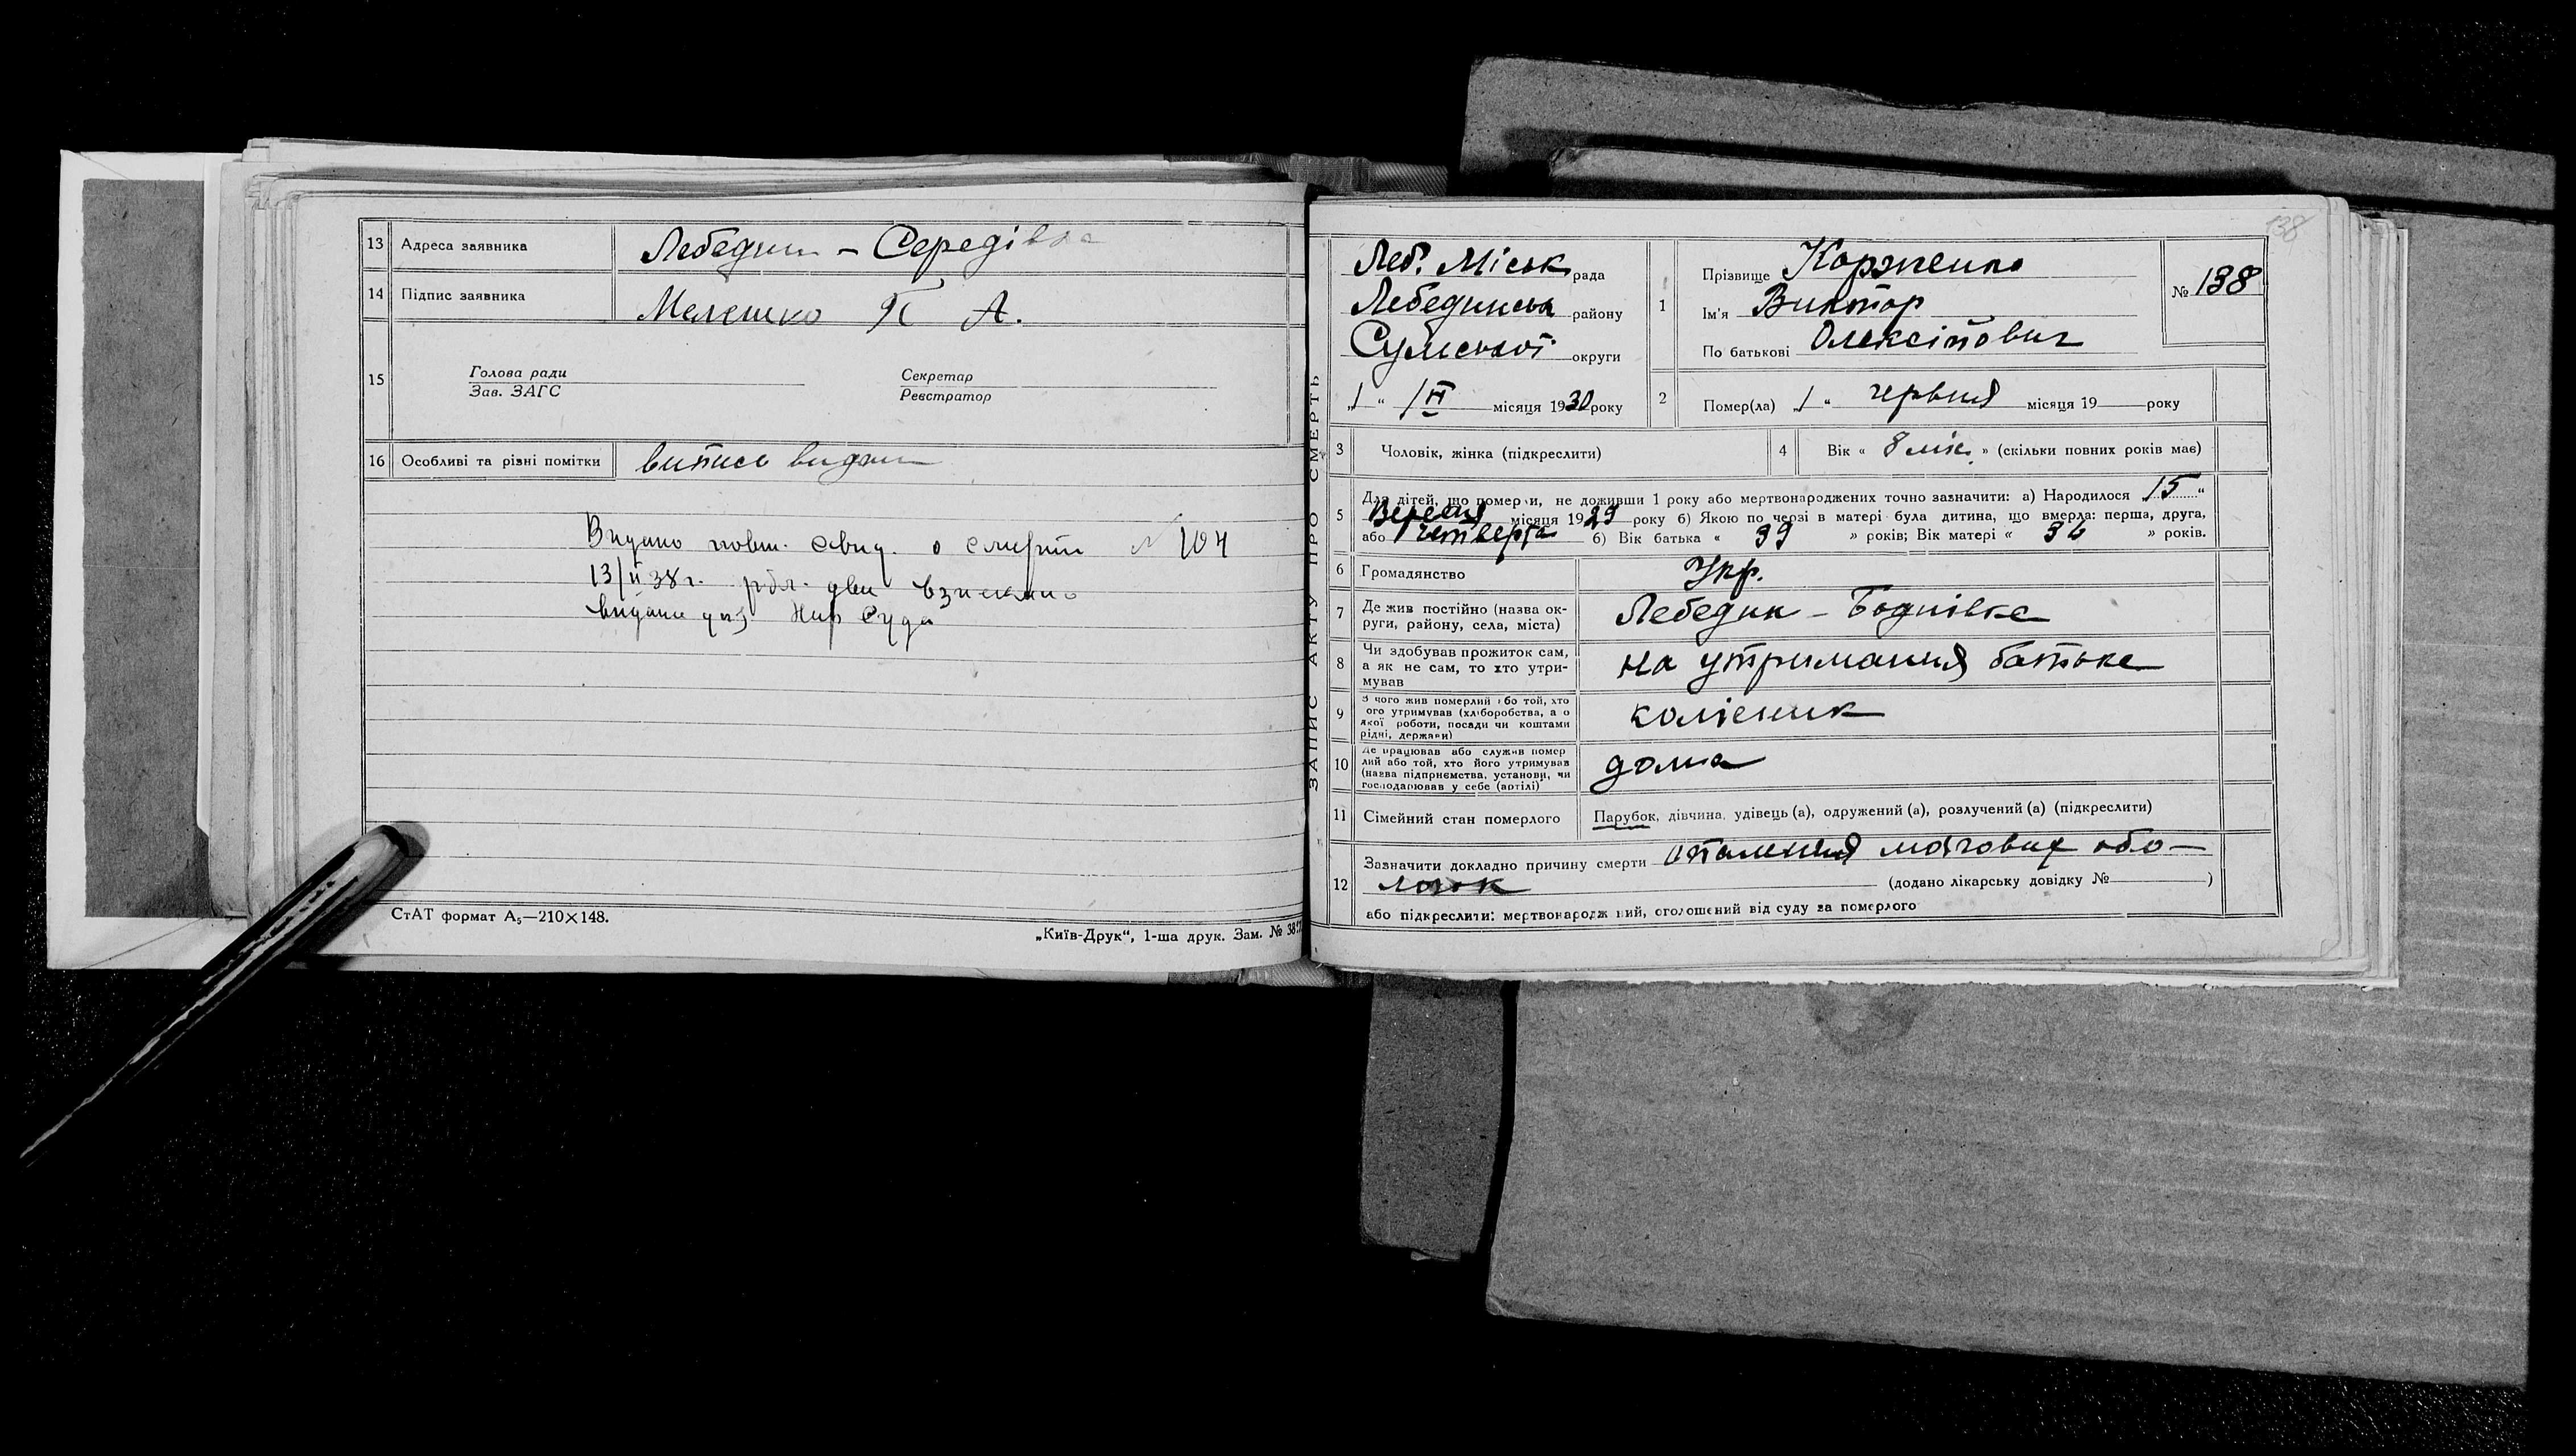 13 Адреса заявника Лебедин - Середівка
14 Підпис заявника Мелешко П А.
15 Голова ради Секретар
Зав. ЗАГС Реєстратор
16 Особливі та різні помітки випись видан
Видано повт. свид. о смерти № 104
13/II 38 г. рбл. два взыскано
видано Нар Суда
СтАТ формат А₅—210×148.
„Київ-Друк“, 1-ша друк. Зам. № 38
138
ЗАПИС АКТУ ПРО СМЕРТЬ
Леб. Міськ рада
Лебединськ району
Сумської округи
„1“ місяця 1930 року
1 Прізвище Корженко
Ім'я Виктор
По батькові Олексійович
№ 138
2 Помер(ла) „1“ червня місяця 19 року
3 Чоловік, жінка (підкреслити)
4 Вік « 8 міс. » (скільки повних років має)
5 Для дітей, що померли, не доживши 1 року або мертвонароджених точно зазначити: а) Народилося „15“
Вересня місяця 1929 року б) Якою по черзі в матері була дитина, що вмерла: перша, друга,
або четверта б) Вік батька « 39 » років; Вік матері « 36 » років.
6 Громадянство Укр.
7 Де жив постійно (назва ок-
руги, району, села, міста) Лебедин -
8 Чи здобував прожиток сам,
а як не сам, то хто утри-
мував на утримання батька
9 З чого жив померлий або той, хто
ого утримував (хліборобства, а о
якої роботи, посади чи коштами
рідні, держави)
10 Де працював або служив помер
лий або той, хто його утримував
(назва підприємства, установи, чи
господарював у себе (артілі) дома
11 Сімейний стан померлого Парубок, дівчина, удівець (а), одружений (а), розлучений (а) (підкреслити)
12 Зазначити докладно причину смерти опалення мозгових обо-
лочок (додано лікарську довідку № )
або підкреслити: мертвонародж ний, оголошений від суду за померлого